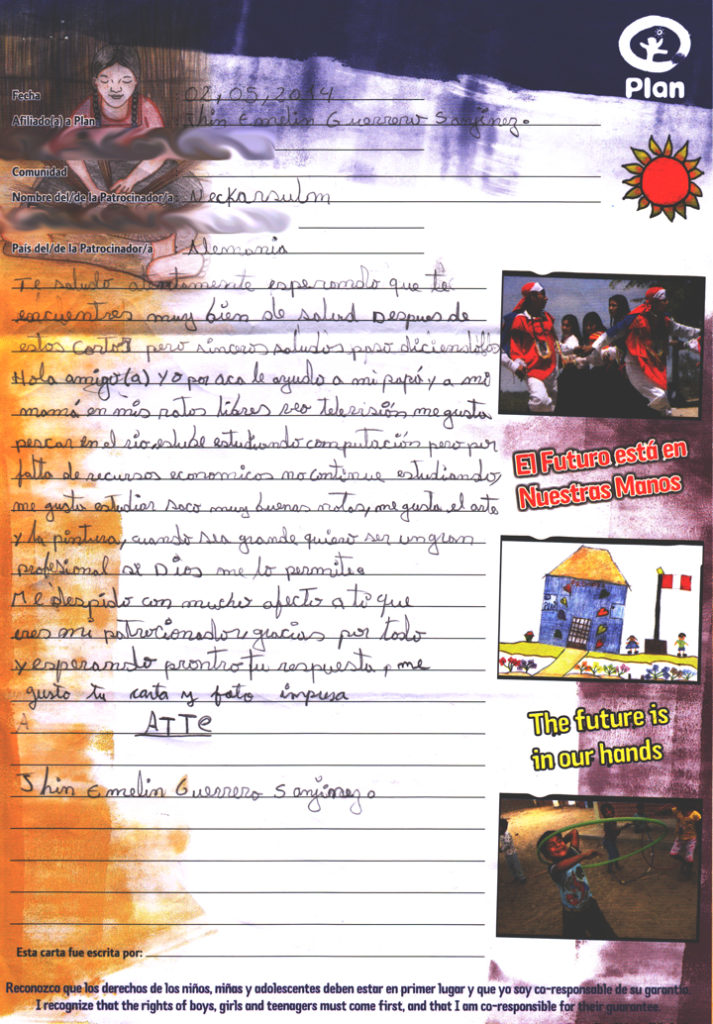 Plan
Fecha 02,05,2014
Afiliado(a) a Plan Jhin Emelin Guerrero Sanjinez.
Comunidad
Nombre del/de la Patrocinador/a Neckarsulm
País del/de la Patrocinador/a Alemania
Te saludo atentamente esperando que te
encuentres muy bien de salud Despues de
estos cortos pero sinceros saludos paso diciendoles
Hola amigo(a) Yo por aca le ayudo a mi papá y a mi
mamá en mis ratos libres veo televisión me gusta
pescar en el rio, estube estudiando computación pero por
falta de recursos economicos no continue estudiando,
me gusta estudiar saco muy buenas notas, me gusta el arte
y la pintura, cuando sea grande quiero ser un gran
profesional se Dios me lo permite.
Me despido con mucho afecto a ti que
eres mi patrocionador, gracias por todo
y esperando prontro tu respuesta, me
gusto tu carta y foto impusa
A ATTe
Jhin Emelin Guerrero Sanjinez.
Esta carta fue escrita por:
El Futuro está en
Nuestras Manos
The future is
in our hands
Reconozco que los derechos de los niños, niñas y adolescentes deben estar en primer lugar y que yo soy co-responsable de su garantía.
I recognize that the rights of boys, girls and teenagers must come first, and that I am co-responsible for their guarantee.